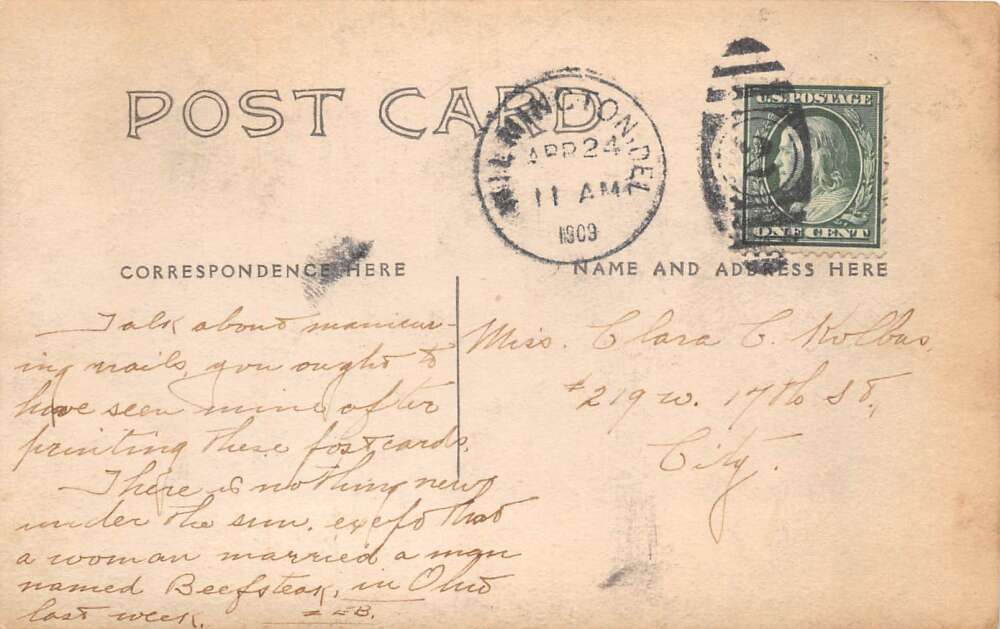 POST CARD
WILMINGTON, DEL.
APR 24
11 AM
1909
U.S. POSTAGE
ONE CENT
CORRESPONDENCE HERE
NAME AND ADDRESS HERE
Talk about manicur-
ing nails, you ought to
have seen mine after
printing these postcards.
There is nothing new
under the sun, except that
a woman married a man
named Beefsteak, in Ohio
last week.
Miss. Clara C. Kolbas,
#219 W. 17th St.,
City.